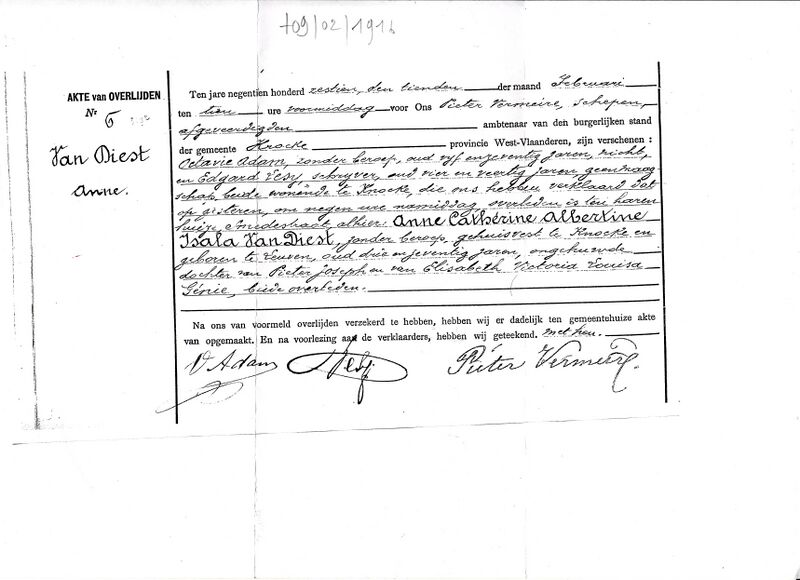 †09/02/1916
AKTE van OVERLIJDEN
Nr 6
Van Diest
Anne.
Ten jare negentien honderd zestien, den tienden der maand Februari
ten tien ure voormiddag voor Ons Pieter Vermeire, schepen,
afgeveerdigden ambtenaar van den burgerlijken stand
der gemeente Knocke provincie West-Vlaanderen, zijn verschenen :
Octavie Adam, zonder beroep, oud vyf en zeventig jaren, nicht,
en Edgard Desy, schryver, oud vier en veertig jaren, geen maag-
schap, beide wonende te Knocke, die ons hebben verklaard dat
op gisteren, om negen ure namiddag, overleden is ten haren
huize alhier. Anne Cathérine Albertine
Isala Van Diest, zonder beroep, gehuisvest te Knocke en
geboren te Leuven, oud drie en zeventig jaren, ongehuwde
dochter van Pieter Joseph en van Elisabeth Victoria Louisa
Génie, beide overleden.
Na ons van voormeld overlijden verzekerd te hebben, hebben wij er dadelijk ten gemeentehuize akte
van opgemaakt. En na voorlezing aan de verklaarders, hebben wij geteekend. met hen.
O Adam Desy Pieter Vermeire